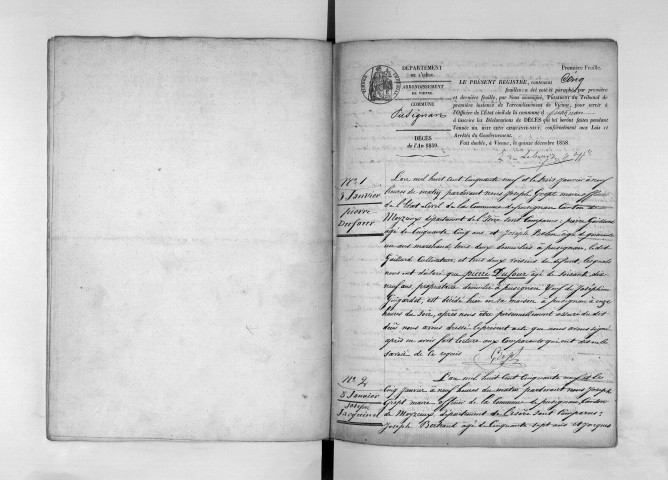 DÉPARTEMENT
DE L'ISÈRE.
ARRONDISSEMENT
DE VIENNE.
COMMUNE
Pusignan
DÉCÈS
de l'An 1859.
Première Feuille.
LE PRÉSENT REGISTRE, contenant Cinq
feuilles, a été coté et paraphé par première
et dernière feuille, par Nous soussigné, Président du Tribunal de
première instance de l'arrondissement de Vienne, pour servir à
l'Officier de l'État civil de la commune d Pusignan
à inscrire les Déclarations de DÉCÈS qui lui seront faites pendant
l'année MIL HUIT CENT CINQUANTE-NEUF, conformément aux Lois et
Arrêtés du Gouvernement.
Fait double, à Vienne, le quinze décembre 1858.
N° 1
3 Janvier
pierre
Dufour
L'an mil huit cent cinquante neuf et le trois janvier à neuf
heures du matin pardevant nous Joseph Grept maire officier
de l'Etat Civil de la Commune de pusignan Canton de
Meyzieux département de l'isère sont Comparus, pierre
âgé de Cinquante Cinq ans et Joseph
un ans marchand, tous deux domiciliés à pusignan, le dit
Cultivateur, et tous deux voisins du défunt, lesquels
nous ont déclaré que pierre Dufour âgé de soixante dix
neuf ans propriétaire domicilié à pusignan Veuf de Joséphine
est décédé hier en sa maison à pusignan à onze
heures du soir, après nous être personnellement assuré du dit
décès nous avons dressé le présent acte que nous avons signé
après en avoir fait lecture aux Comparants qui ont dit ne le
savoir de ce requis
Grept
N° 2
5 Janvier
Joseph
L'an mil huit cent Cinquante neuf et le
Cinq janvier à neuf heures du matin pardevant nous Joseph
Grept maire officier de la Commune de pusignan Canton
de Meyzieux département de l'isère sont Comparus:
Joseph âgé de Cinquante sept ans et Jacques